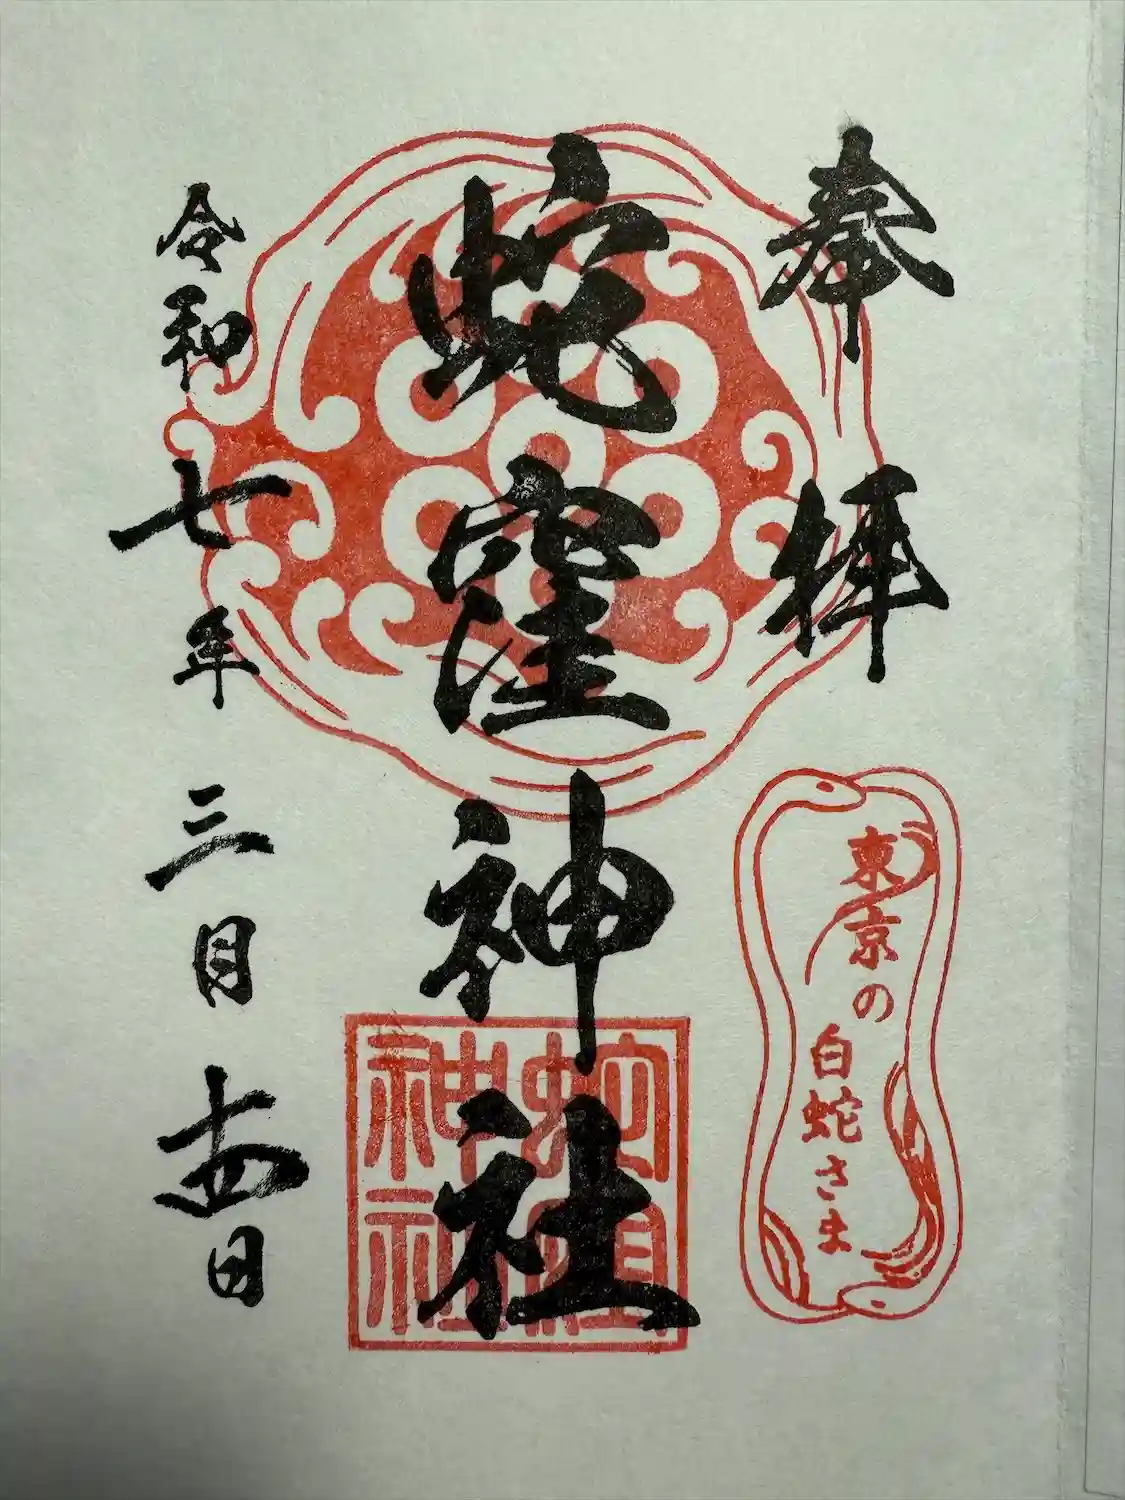 奉拝
東京の
白蛇さま
蛇窪神社
蛇窪
神社
令和七年三月十四日